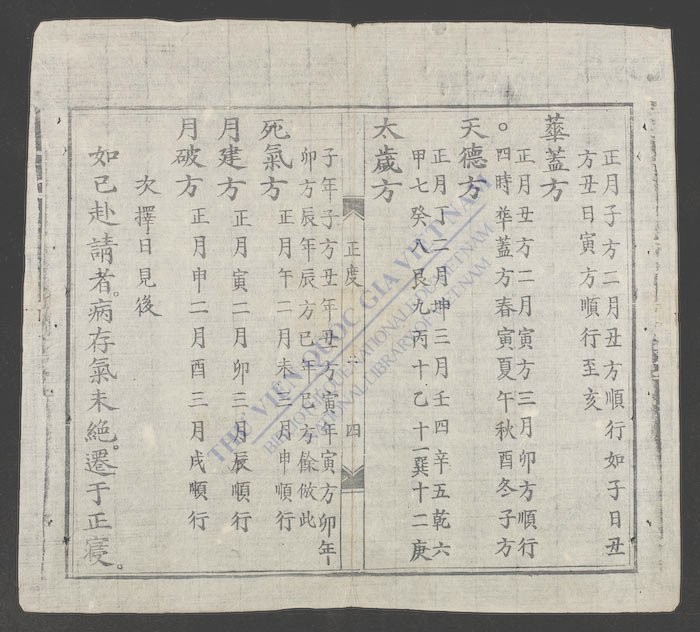 正月子方二月丑方順行如子日丑
方丑日寅方順行至亥
華蓋方
正月丑方二月寅方三月卯方順行
○四時華蓋方春寅夏午秋酉冬子方
天德方
正月丁二月坤三月壬四辛五乾六
甲七癸八艮九丙十乙十一巽十二庚
太歲方
正度
二十四
子年子方丑年丑方寅年寅方卯年
卯方辰年辰方巳年巳方餘倣此
死氣方
正月午二月未三月申順行
月建方
正月寅二月卯三月辰順行
月破方
正月申二月酉三月戌順行
次擇日見後
如已赴請者。病存氣未絶。遷于正寢。
THƯ VIỆN QUỐC GIA VIỆT NAM
BIBLIOTHÈQUE NATIONALE DU VIETNAM
NATIONAL LIBRARY OF VIETNAM